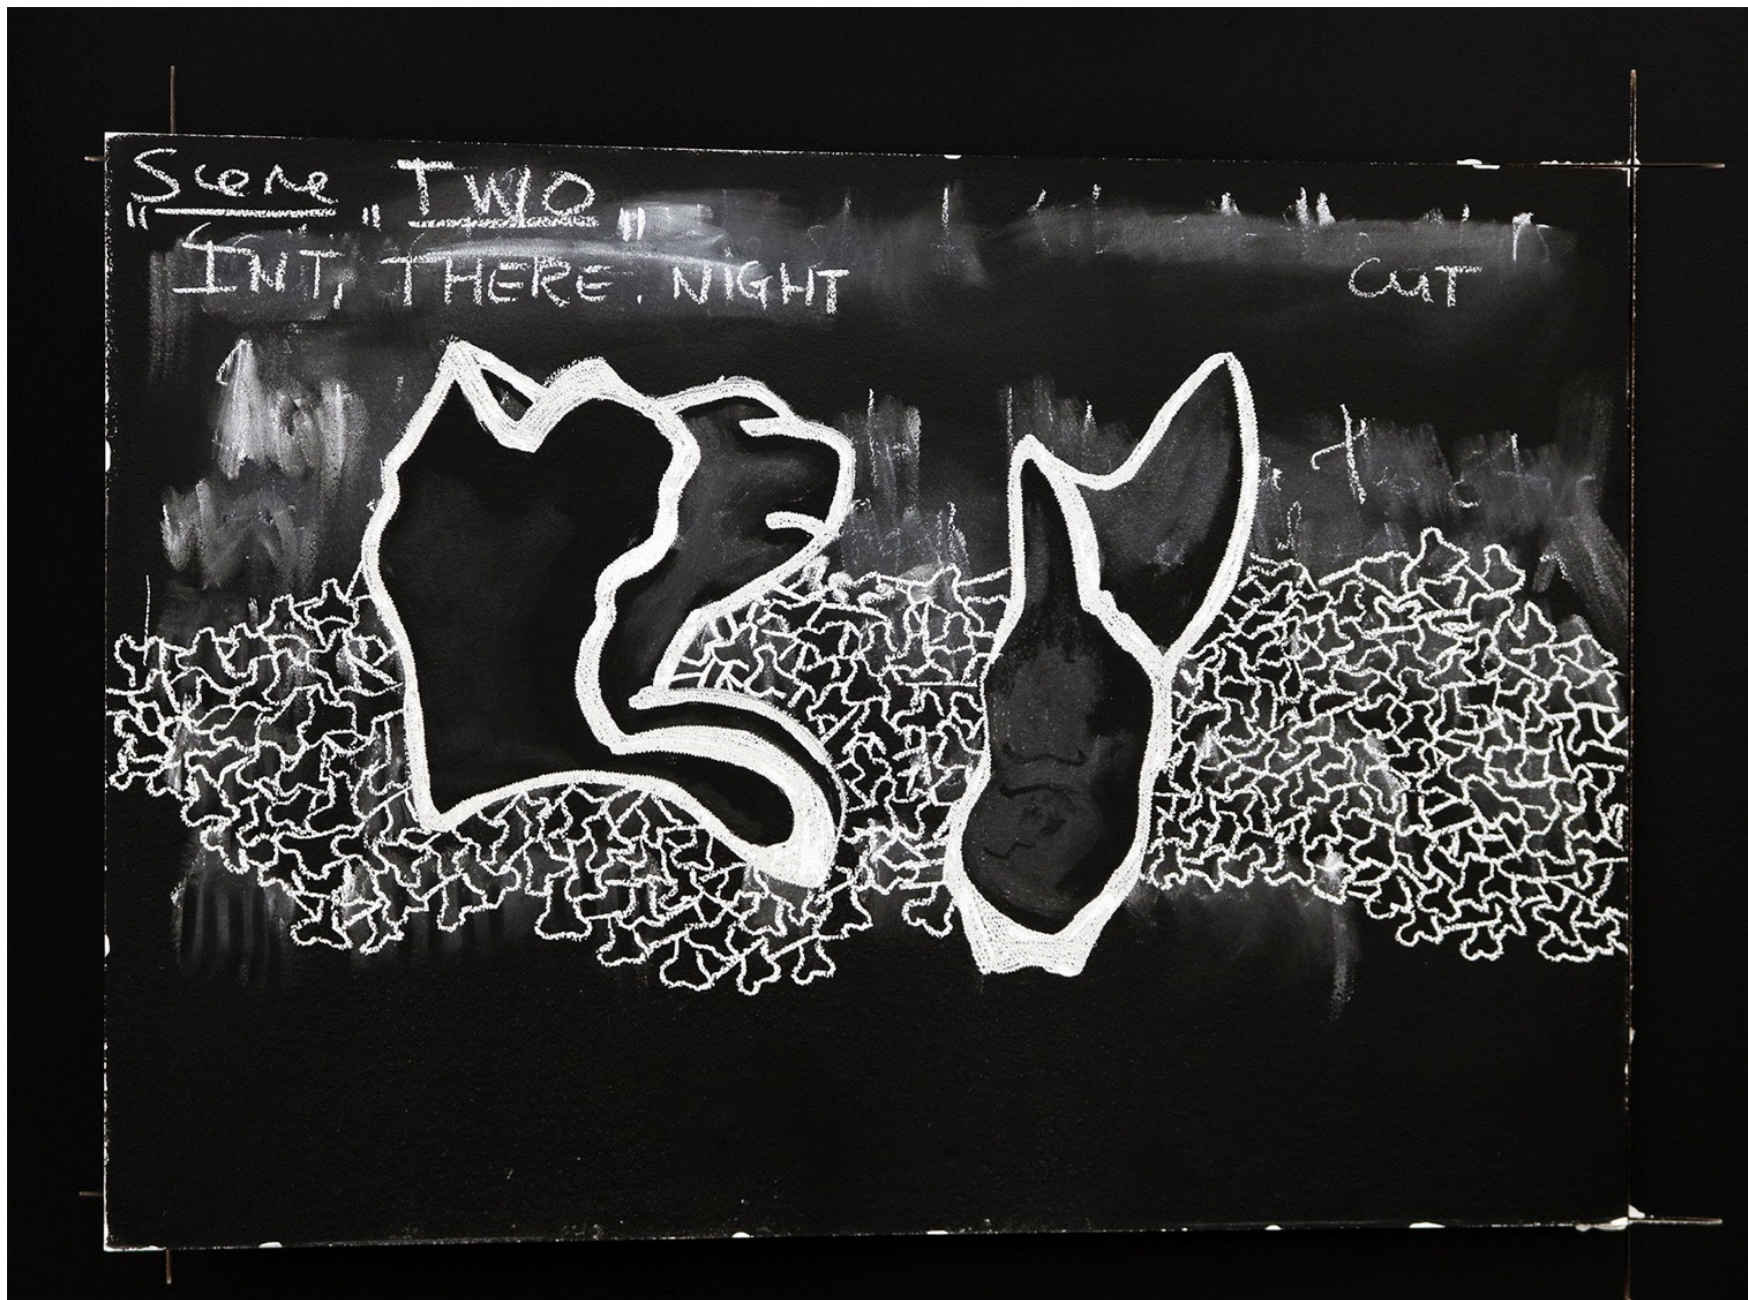 "Scene" "TWO"
INT, THERE. NIGHT
CUT